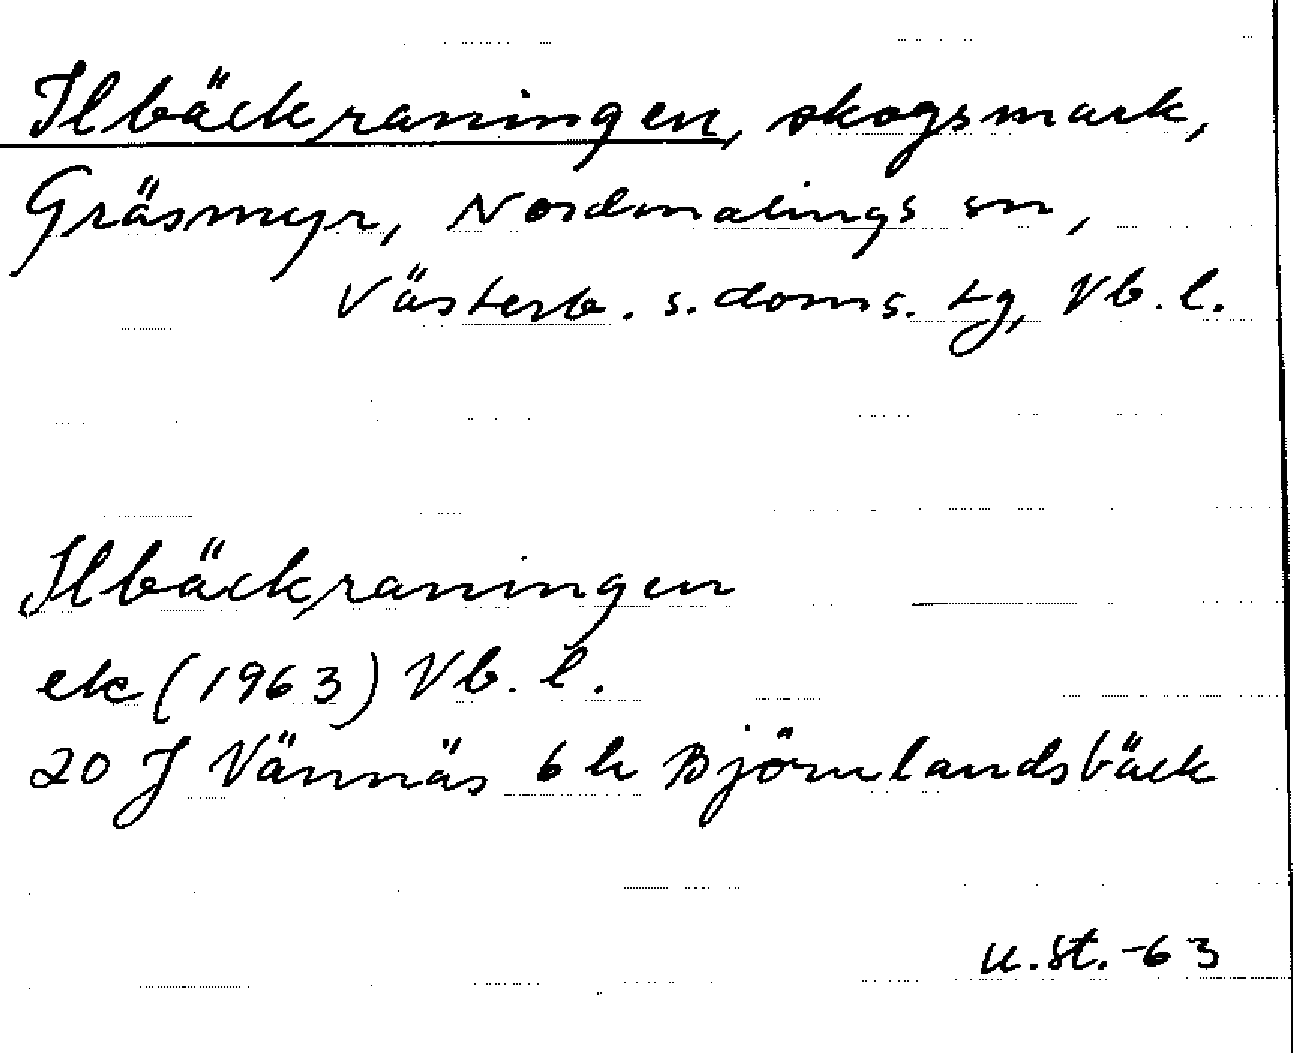 Ilbäckraningen, skogsmark,
Gräsmyr, Nordmalings sn,
Västerb. s. doms. tg, Vb. l.
Ilbäckraningen
ek (1963) Vb. l.
20 J Vännäs 6 h Björnlandsbäck
u.st.-63